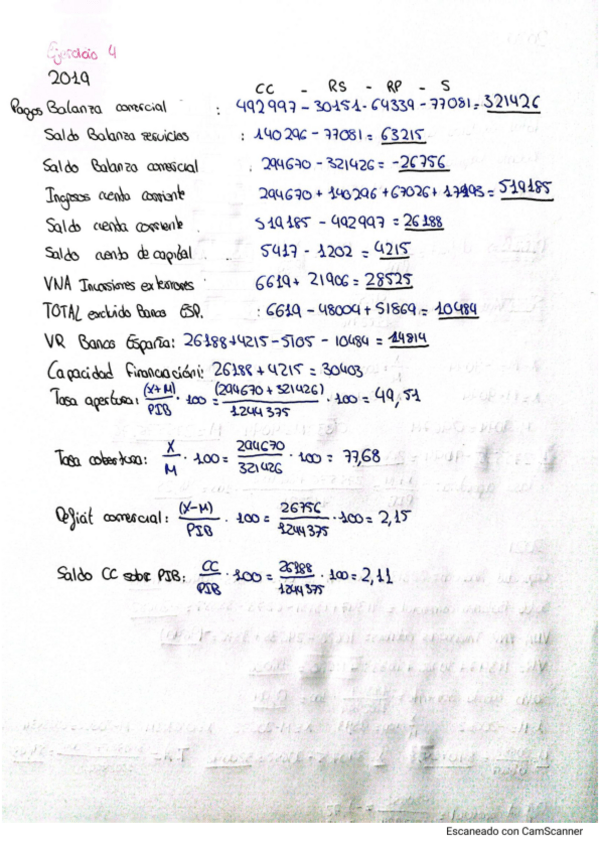 Ejercicio 4
2019
CC - RS - RP - S
Pagos Balanza comercial : 492997 - 30151 - 64339 - 77081 = 321426
Saldo Balanza servicios : 140296 - 77081 = 63215
Saldo Balanza comercial : 294670 - 321426 = -26756
Ingresos cuenta corriente 294670 + 140296 + 67026 + 17193 = 519185
Saldo cuenta corriente . 519185 - 492997 = 26188
Saldo cuenta de capital 5417 - 1202 = 4215
VNA Inversiones exteriores : 6619 + 21906 = 28525
TOTAL excluido Banco ESP. : 6619 - 48004 + 51869 = 10484
VR Banco España: 26188 + 4215 - 5105 - 10484 = 14814
Capacidad financiación: 26188 + 4215 = 30403
Tasa apertura: (X+M)/PIB · 100 = (294670 + 321426)/1244375 · 100 = 49,51
Tasa cobertura: X/M · 100 = 294670/321426 · 100 = 77,68
Deficit comercial: (X-M)/PIB · 100 = 26756/1244375 · 100 = 2,15
Saldo CC sobre PIB: CC/PIB · 100 = 26188/1244375 · 100 = 2,11
Escaneado con CamScanner